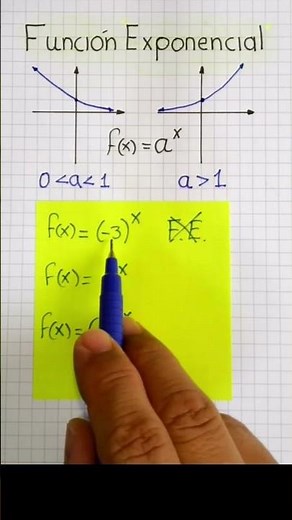 Función Exponencial
f(x) = aˣ
0 < a < 1
a > 1
f(x) = (-3)ˣ F.E.
f(x) = ˣ
f(x) = ( ˣ